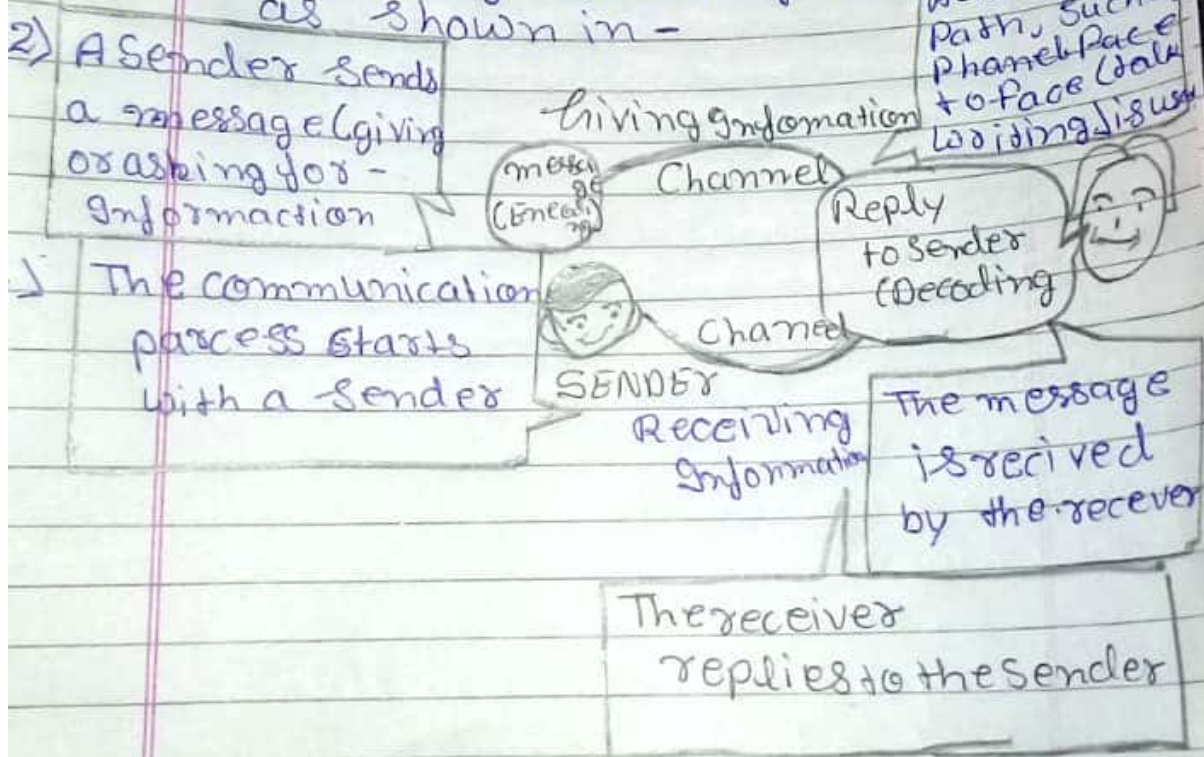 as shown in -
2) A Sender Sends
a message (giving
or asking for -
Information
Path, Such
to face (talk
Giving Infomation
Messa
ge
Channel
Reply
to Sender
(Decoding
The communication
parcess starts
with a Sender
Chaneel
SENDER
Receiving
Information
The message
is recived
by the recever
The receiver
replies to the Sender